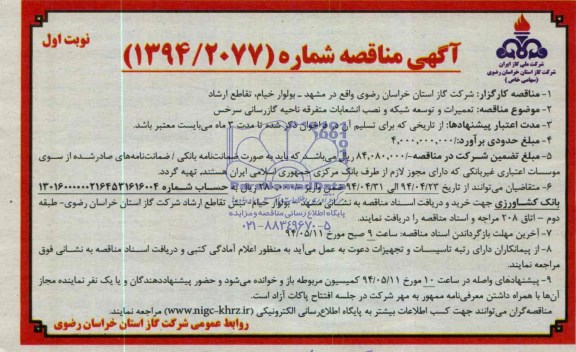 نوبت اول
آگهی مناقصه شماره (۱۳۹۴/۲۰۷۷)
شرکت ملی گاز ایران
شرکت گاز استان خراسان رضوی
(سهامی خاص)
۱- مناقصه کارگزار: شرکت گاز استان خراسان رضوی واقع در مشهد ـ بولوار خیام، تقاطع ارشاد
۲- موضوع مناقصه: تعمیرات و توسعه شبکه و نصب انشعابات متفرقه ناحیه گازرسانی سرخس
۳- مدت اعتبار پیشنهادها: از تاریخی که برای تسلیم آن در فراخوان ذکر شده تا مدت ۳ ماه می‌بایست معتبر باشد.
۴- مبلغ حدودی برآورد: ۴,۰۰۰,۰۰۰,۰۰۰/
۵- مبلغ تضمین شرکت در مناقصه ۸۴,۰۸۰,۰۰۰/ ریال می‌باشد که باید به صورت ضمانت‌نامه بانکی / ضمانت‌نامه‌های صادرشده از سوی
موسسات اعتباری غیربانکی که دارای مجوز لازم از طرف بانک مرکزی جمهوری اسلامی ایران هستند، تهیه گردد.
۶- متقاضیان می‌توانند از تاریخ ۹۴/۰۴/۲۳ الی ۹۴/۰۴/۳۱ ضمن واریز ریال به حساب شماره
بانک کشاورزی جهت خرید و دریافت اسناد مناقصه به نشانی مشهد- بولوار خیام- نبش تقاطع ارشاد شرکت گاز استان خراسان رضوی- طبقه
دوم – اتاق ۲۰۸ مراجعه و اسناد مناقصه را دریافت نمایند.
پایگاه اطلاع رسانی مناقصه و مزایده
۰۲۱-۸۸۳۴۹۶۷۰-۵
۷- آخرین مهلت بازگرداندن اسناد مناقصه: ساعت ۹ صبح مورخ ۹۴/۰۵/۱۱
۸- از پیمانکاران دارای رتبه تاسیسات و تجهیزات دعوت به عمل می‌آید به منظور اعلام آمادگی کتبی و دریافت اسناد مناقصه به نشانی فوق
مراجعه نمایند.
۹- پیشنهادهای واصله در ساعت ۱۰ مورخ ۹۴/۰۵/۱۱ کمیسیون مربوطه باز و خوانده می‌شود و حضور پیشنهاددهندگان و یا یک نفر نماینده مجاز
آن‌ها با همراه داشتن معرفی‌نامه ممهور به مهر شرکت در جلسه افتتاح پاکات آزاد است.
مناقصه‌گران می‌توانند جهت کسب اطلاعات بیشتر به پایگاه اطلاع‌رسانی الکترونیکی (www.nigc-khrz.ir) مراجعه نمایند.
روابط عمومی شرکت گاز استان خراسان رضوی